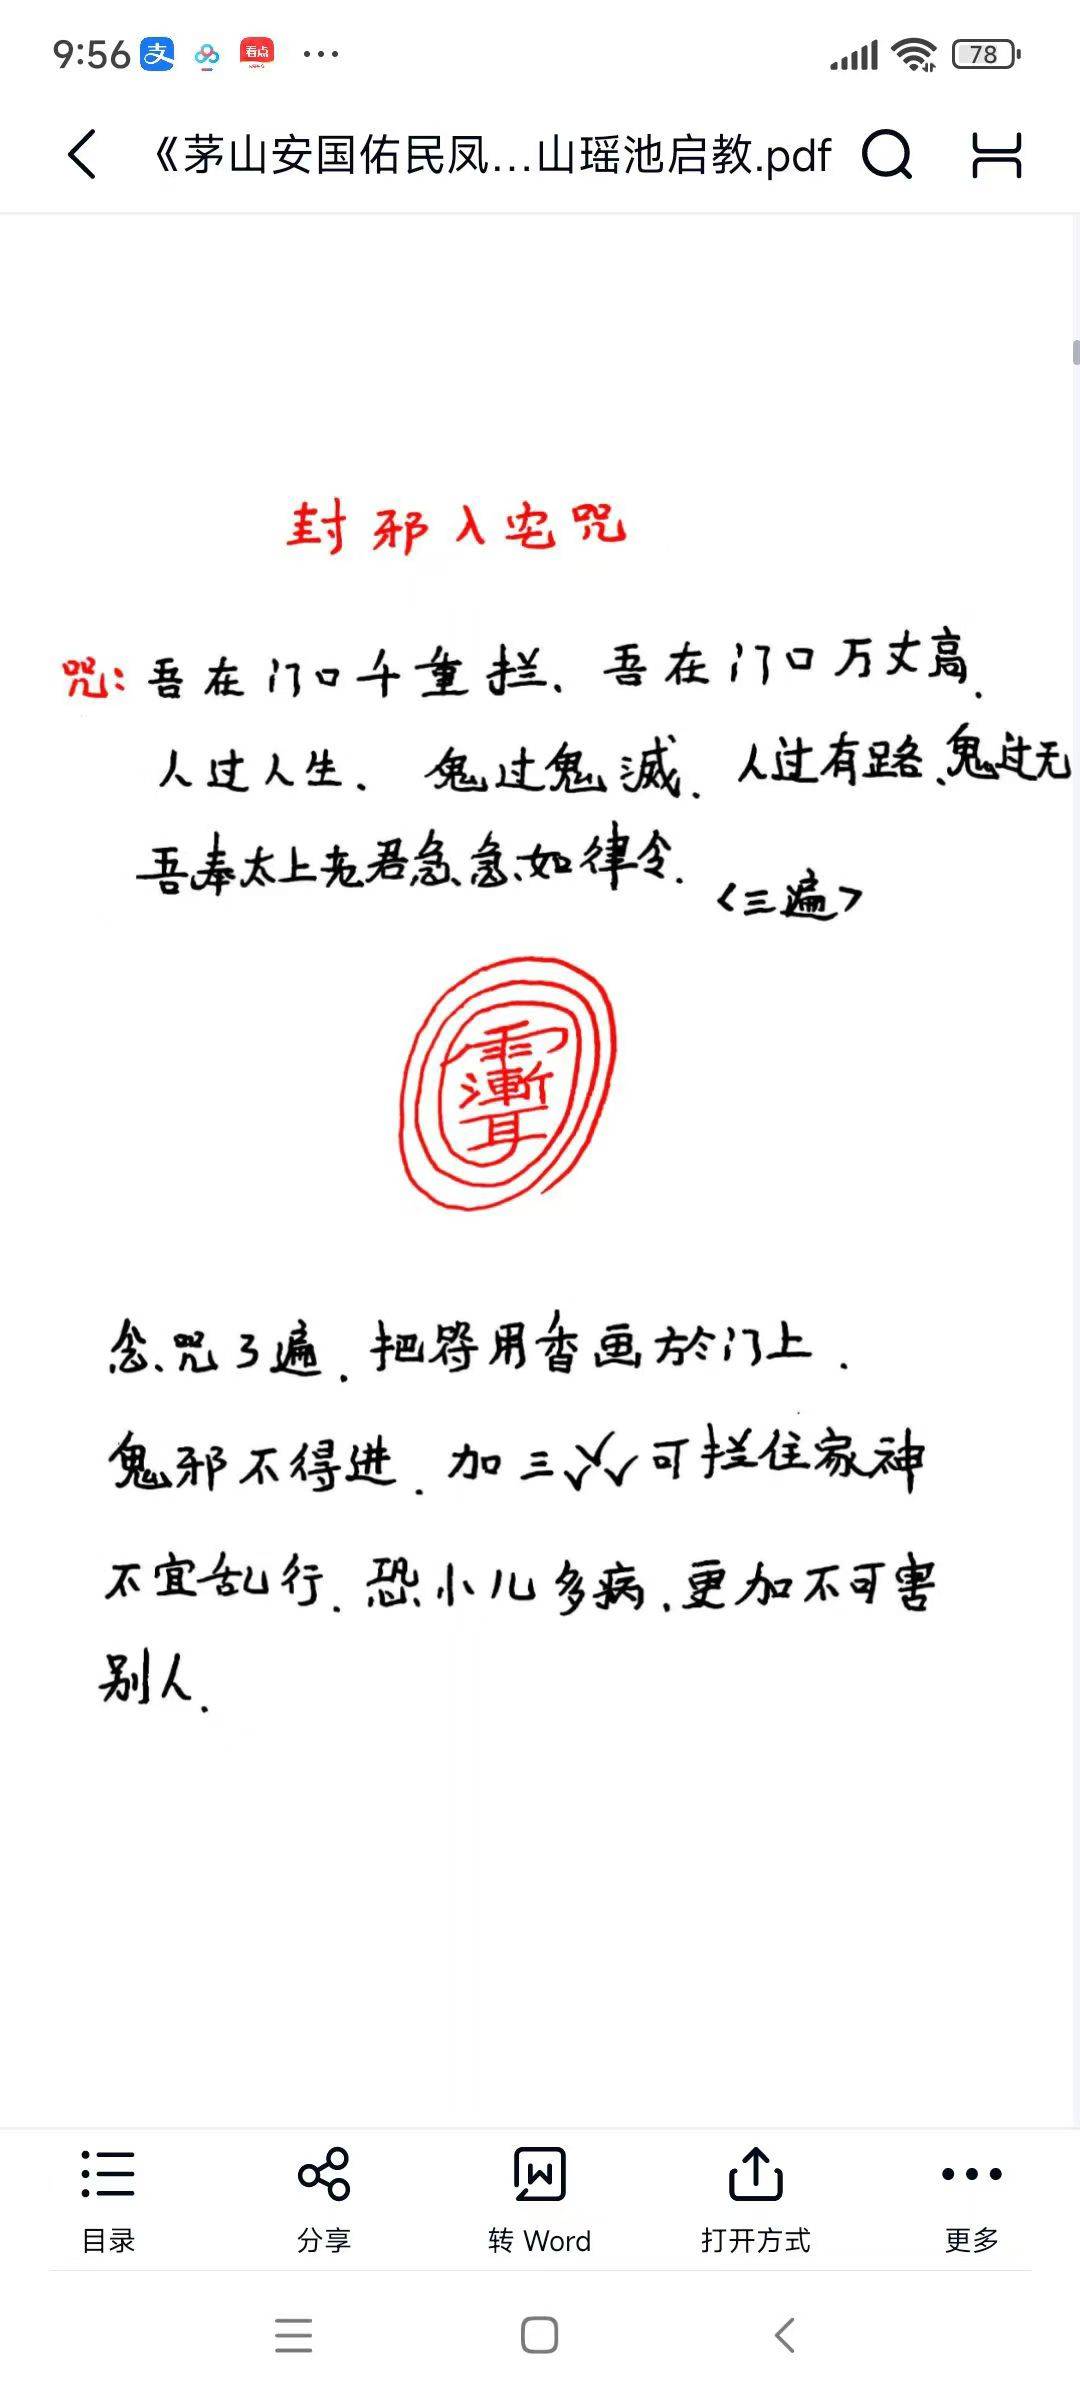 9:56 支 看点 ... 78
《茅山安国佑民凤...山瑶池启教.pdf
封邪入宅咒
咒:吾在门口千重拦、吾在门口万丈高.
人过人生.鬼过鬼滅.人过有路、鬼过无
吾奉太上老君急急如律令.
<三遍>
念咒3遍.把符用香画於门上.
鬼邪不得进.加三✓✓✓可拦住家神
不宜乱行.恐小儿多病.更加不可害
别人.
目录 分享 转 Word 打开方式 更多